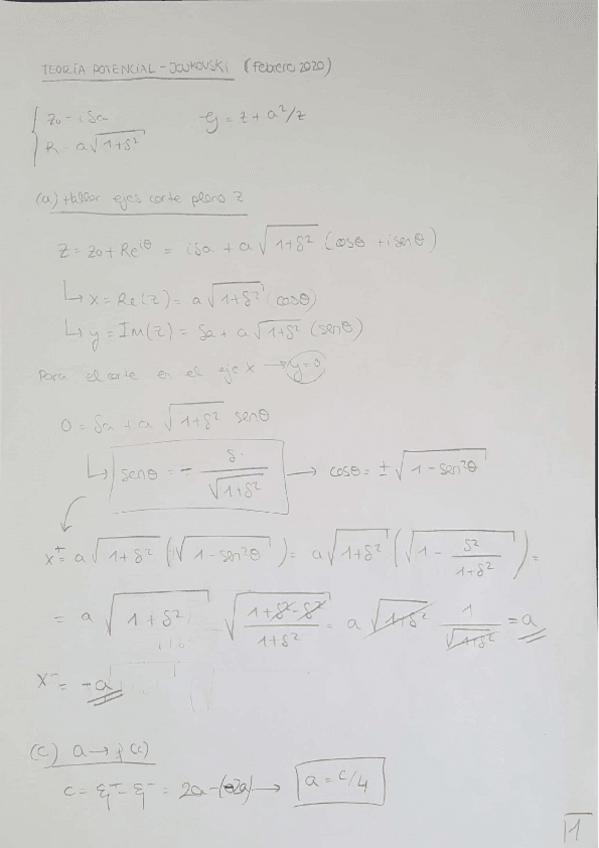 TEORÍA POTENCIAL - JOUKOVSKI (febrero 2020)
z₀ = iδa
ξ = z + a²/z
R = a√(1+δ²)
(a) Hallar ejes corte plano z
z = z₀ + Re^(iθ) = iδa + a√(1+δ²) (cosθ + i senθ)
↳ x = Re(z) = a√(1+δ²) (cosθ)
↳ y = Im(z) = δa + a√(1+δ²) (senθ)
Para el corte en el eje x → y=0
0 = δa + a √(1+δ²) senθ
↳ senθ = - δ/√(1+δ²) → cosθ = ±√(1-sen²θ)
x⁺ = a√(1+δ²) (√(1-sen²θ)) = a√(1+δ²) (√(1 - δ²/(1+δ²))) =
= a √(1+δ²) √((1+δ²-δ²)/(1+δ²)) = a √(1+δ²) 1/√(1+δ²) = a
x⁻ = -a
(c) a → f(c)
c = ξ⁺ - ξ⁻ = 2a-(-2a) → a = c/4
1